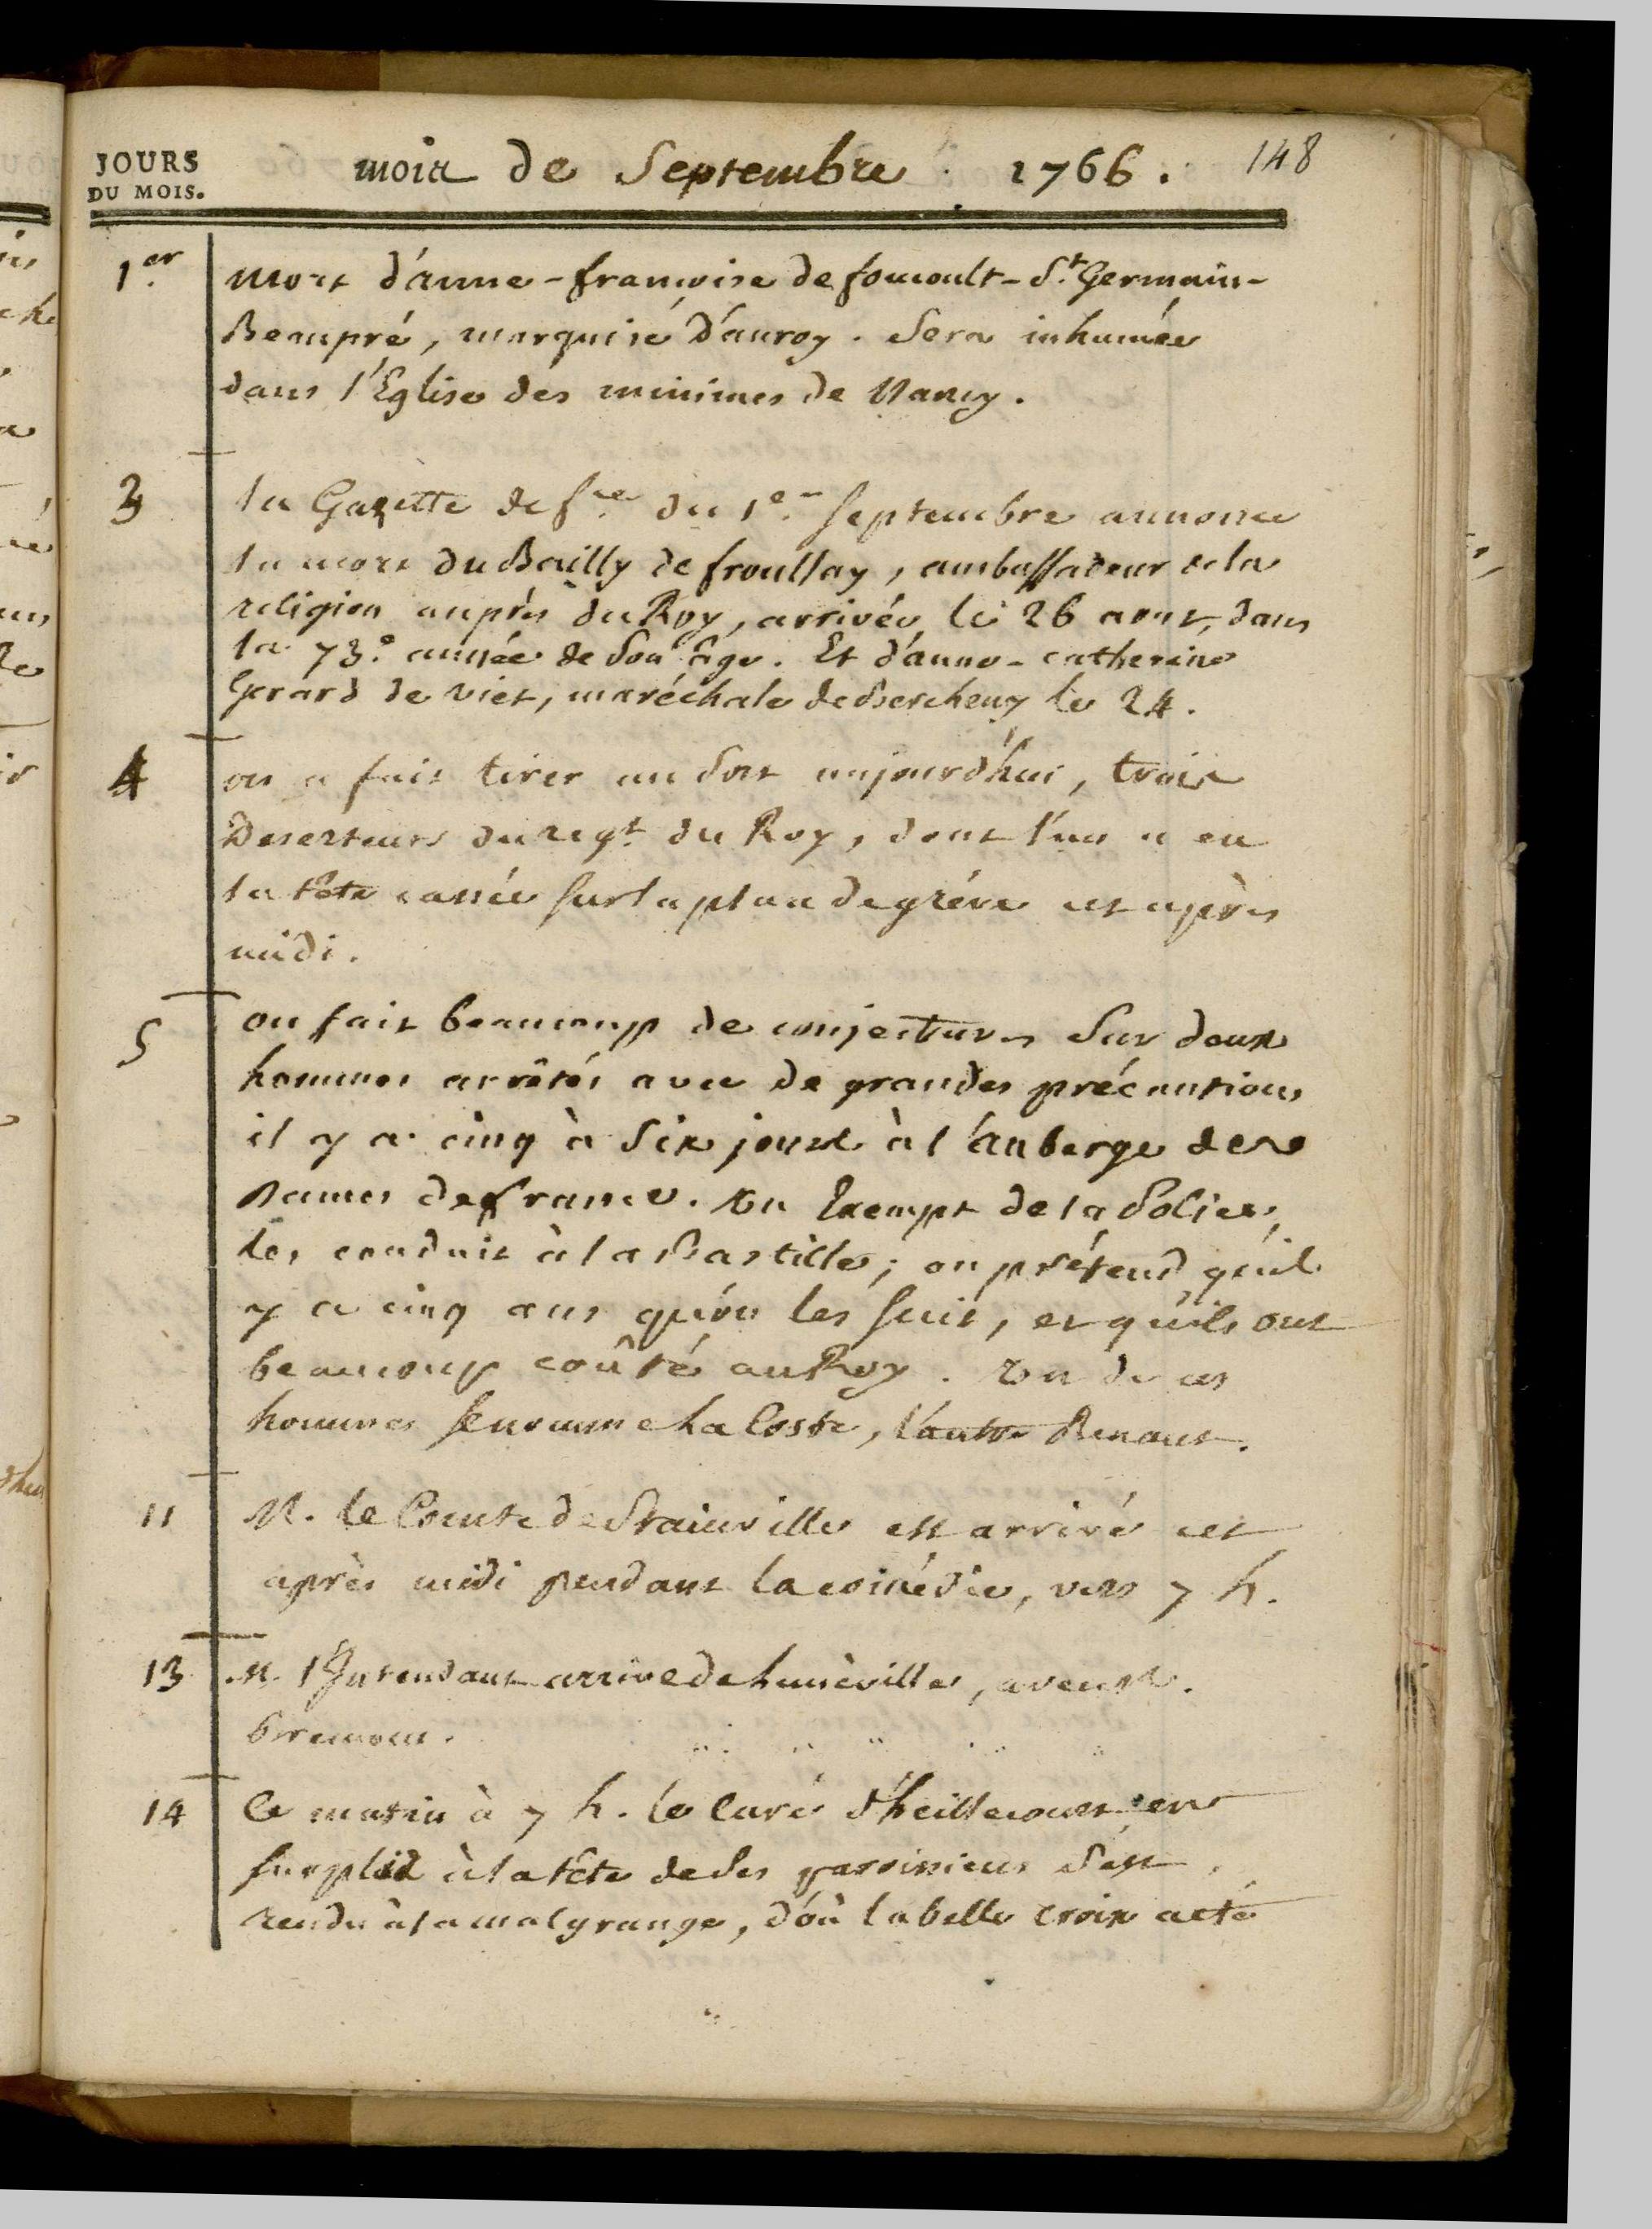 JOURS
DU MOIS.
mois de Septembre 1766. 148
1.er mort d'anne-françoise de foucault-S.t Germain-
Beaupré, marquise d'auroy. Sera inhumée
dans l'Eglise des minimes de Nancy.
3 la Gazette de f.ce du 1.er septembre annonce
la mort du Bailly de froullay, ambassadeur de la
religion auprès du Roy, arrivée le 26 aout, dans
la 73.e année de son âge. Et d'anne-catherine
Gerard de viet, maréchale de Bercheny le 24.
4 on a fait tirer au sort aujourd'hui, trois
Deserteurs du reg.t du Roy, dont l'un a eu
la tête cassée sur la place de gréve cet après
midi.
5 on fait beaucoup de conjectures sur deux
hommes arrêtés avec de grandes précautions
il y a cinq à six jours à l'auberge des
Dames de france. Un Exempt de la Police,
les conduit à la Bastille; on prétend qu'il
y a cinq ans qu'on les suit, et qu'ils ont
beaucoup coûté au Roy. Un de ces
hommes se nomme La Coste, l'autre Renaut.
11 M. le Comte de Stainville est arrivé cet
après midi pendant la comédie, vers 7 h.
13 M. l'Intendant arrive de Lunéville, avec M.
Bremont.
14 Ce matin à 7 h. le Curé d'heillecourt en
surplis à la tête de ses paroissiens s'est
rendu à la malgrange, d'où la belle croix a eté